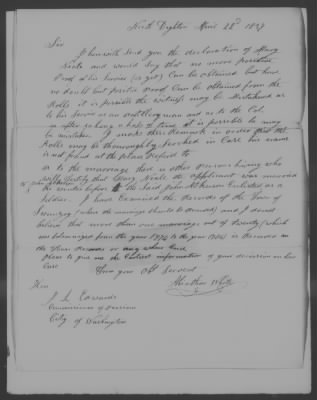 North Dighton April 28th 1837
Sir
I herewith Send you the declaration of Mary
and would Say that no more positive
Proof of his Service (as yet) Can be obtained but have
no doubt but positive Proof Can be obtained from the
Rolls it is possible the witness may be Mistaken as
to his Service as an artillery man and as to the Col.
as after so long a lapse of time it is possible he may
be mistaken I make these Remarks in order that the
Rolls may be thoroughly Searched in Case his name
is not found at the place Refered to
as to the marriage there is other persons living who
will Certify that Mary the applicant was married
to John Atkinson
the before the Said John Atkinson Enlisted as a
Soldier. I have Examined the Records of the Town of
(where the marriage Should be recorded) and I do not
believe that more than one marriage out of twenty (which
was Solemnized from the year 1774 to the year 1784) is Recorded on
the Town Records or any where Else
Please to give me the Earliest information of your decission in her
Case
Your Obt Servant
Hon
J. L. Edwards
Commissioner of Pensions
City of Washington